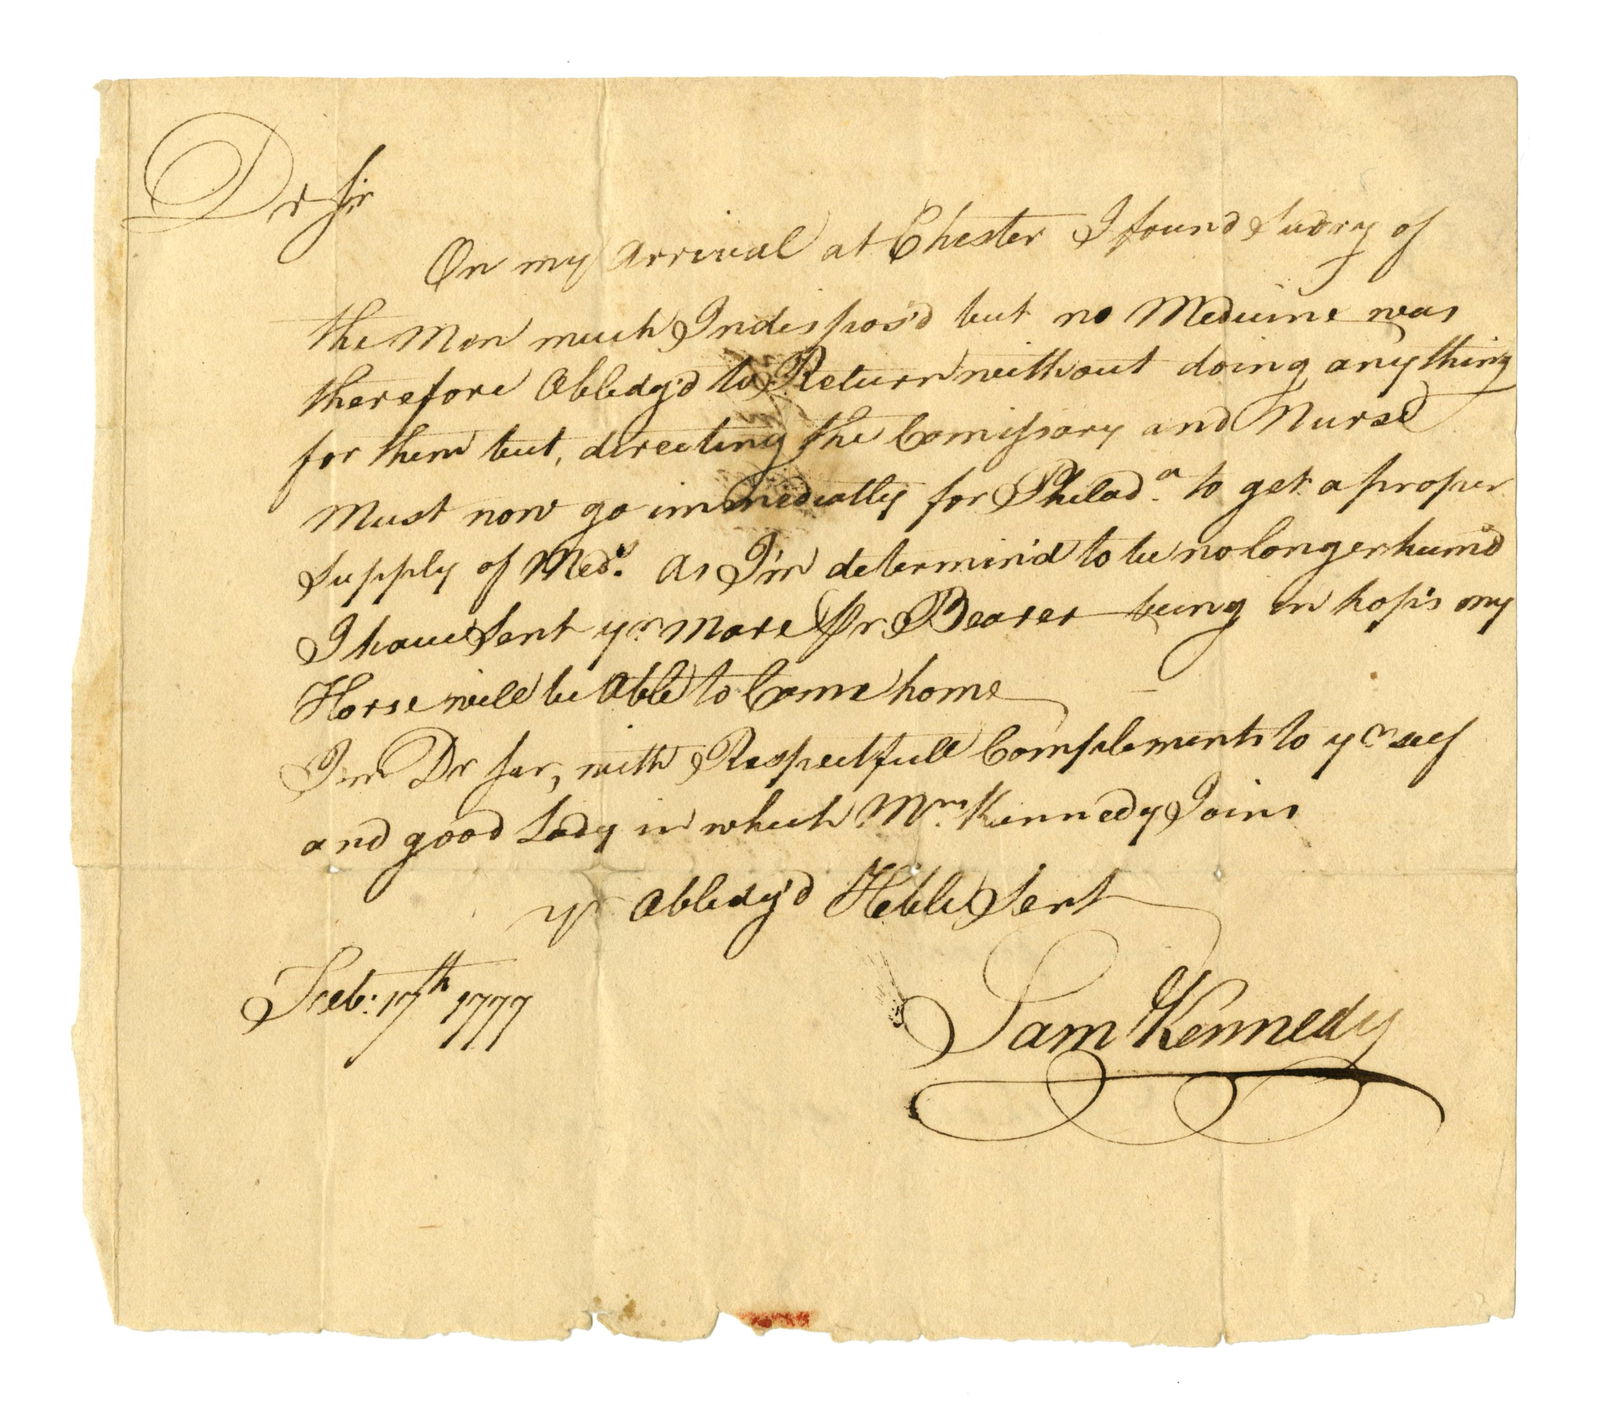 Dr Sir
On my arrival at Chester I found Sudry of
the Men much Indispos'd but no Medicine was
therefore Abledg'd to Return without doing any thing
for them but, directing the Comissary and Nurse
Must now go immediatly for Philad.a to get a proper
Supply of Meds. As I'm determin'd to be no longer hum'd
I have Sent yr Mare Pr. Bearer being in hop's my
Horse will be Able to Come home
I'm Dr Sar, with Respectfull Complements to yr self
and good Lady in which Mrs Kennedy Joins
yr Abledg'd Hble Sert
Feb: 17th 1777
Sam Kennedy